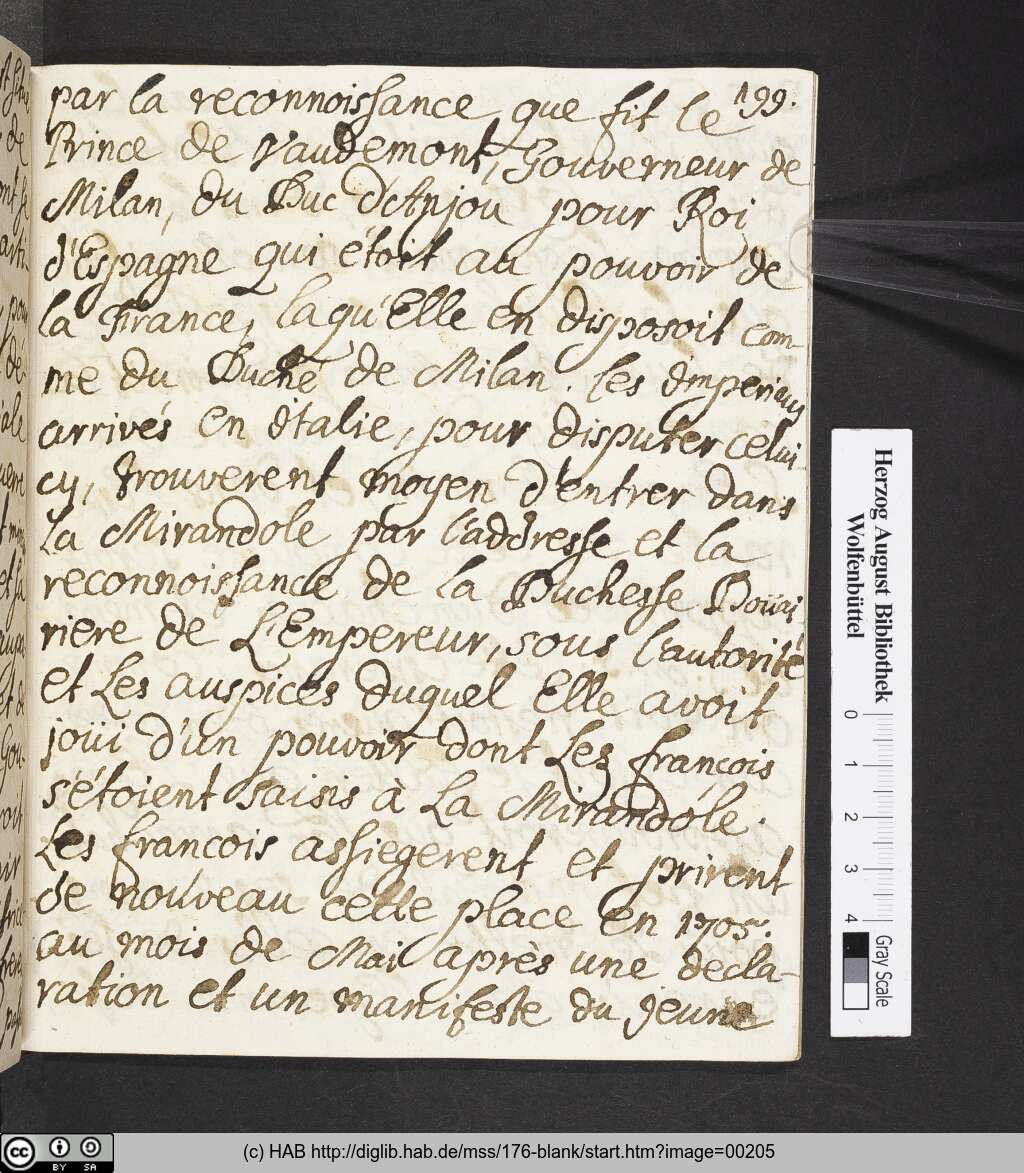 199.
par la reconnoissance que fit le
Prince de Vaudemont, Gouverneur de
Milan, du Duc d'Anjou pour Roi
d'Espagne qui étoit au pouvoir de
la France, laqu'Elle en disposoit com-
me du Duché de Milan. les Imperiaux
arrivés en Italie, pour disputer celui-
cy, trouverent moyen d'entrer dans
La Mirandole par l'addresse et la
reconnoissance de la Duchesse Doüai-
riere de L'Empereur, sous l'autorité
et Les auspices duquel Elle avoit
joüi d'un pouvoir dont Les françois
s'étoient saisis à La Mirandole.
Les francois assiegerent et prirent
de nouveau cette place en 1705.
au mois de Mai après une decla-
ration et un manifeste du jeune
Herzog August Bibliothek
Wolfenbüttel
0 1 2 3 4
Gray Scale
cc BY SA
(c) HAB http://diglib.hab.de/mss/176-blank/start.htm?image=00205